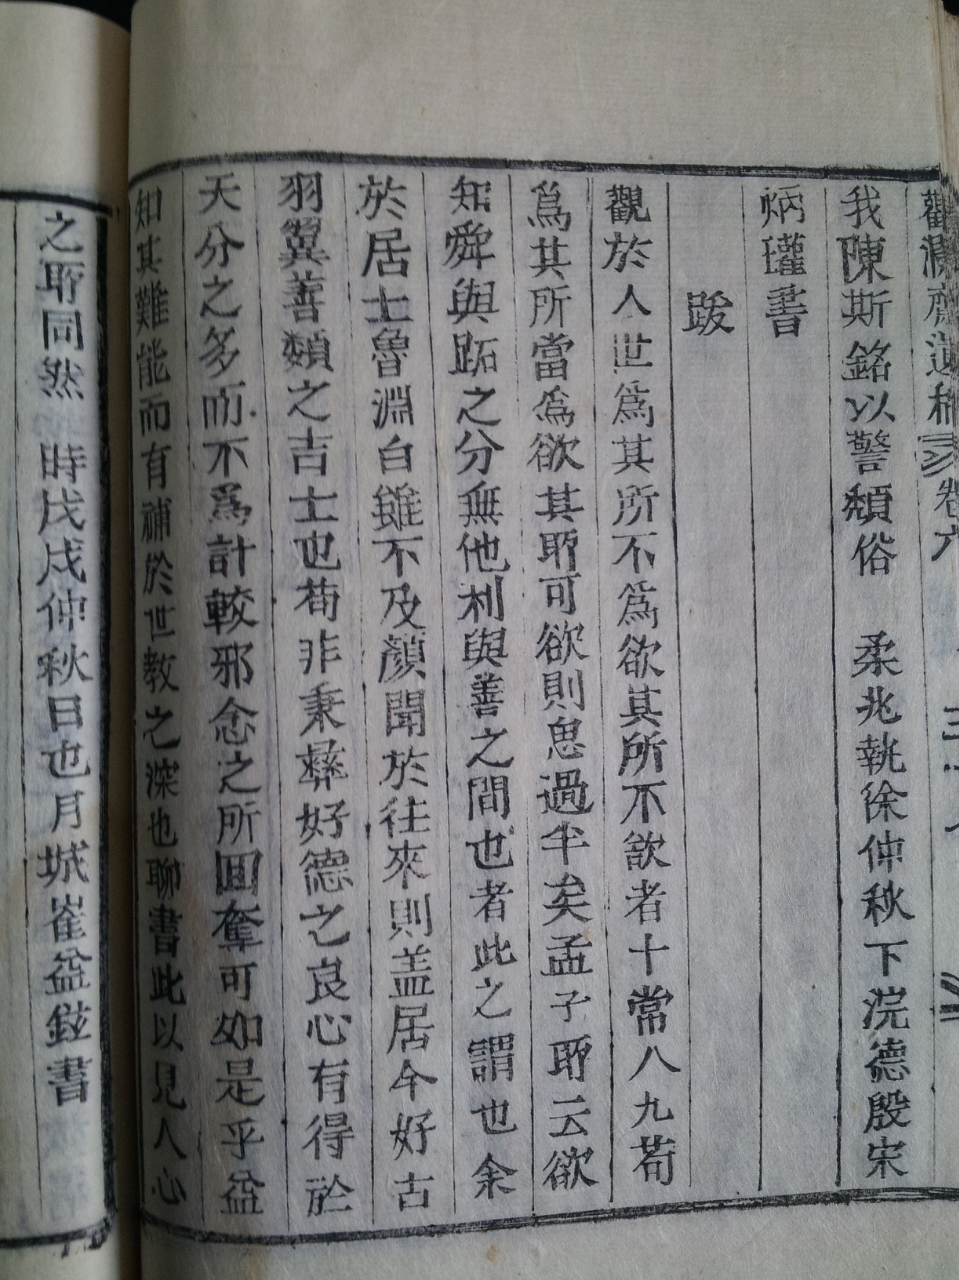 觀瀾齋遺稿 卷六
我陳斯銘以警頹俗 柔兆執徐仲秋下浣德殷宋
炳瓘書
跋
觀於人世爲其所不爲欲其所不欲者十常八九苟
爲其所當爲欲其所可欲則思過半矣孟子所云欲
知舜與跖之分無他利與善之間也者此之謂也余
於居士魯淵白雖不及顔聞於往來則盖居今好古
羽翼善類之吉士也苟非秉彝好德之良心有得於
天分之多而不爲計較邪念之所回奪可如是乎益
知其難能而有補於世教之深也聊書此以見人心
之所同然 時戊戌仲秋日也月城崔益鉉書